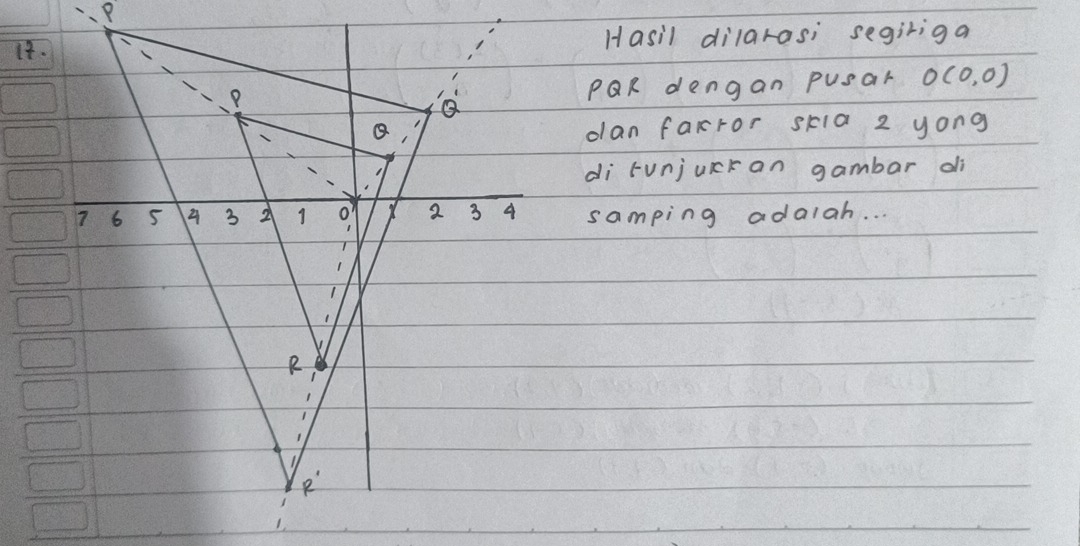 17.
P'
P
Q
Q'
7 6 5 4 3 2 1 0 1 2 3 4
R
R'
Hasil dilatasi segitiga
PQR dengan pusat O(0,0)
dan faktor skla 2 yang
di tunjukkan gambar di
samping adalah...